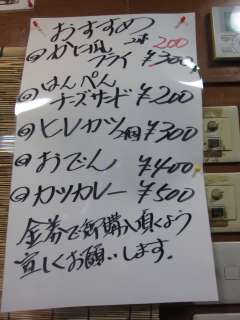 おすすめ
◎かに風 2ヶ 200
フライ ¥300
◎はんぺん
チーズサンド ¥200
◎ヒレカツ2個 ¥300
◎おでん ¥400
◎カツカレー ¥500
金券で御購入頂くよう
宜しくお願いします。